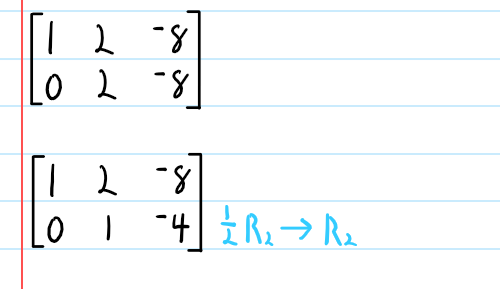 1 2 -8
0 2 -8
1 2 -8
0 1 -4 1/2 R₂ → R₂